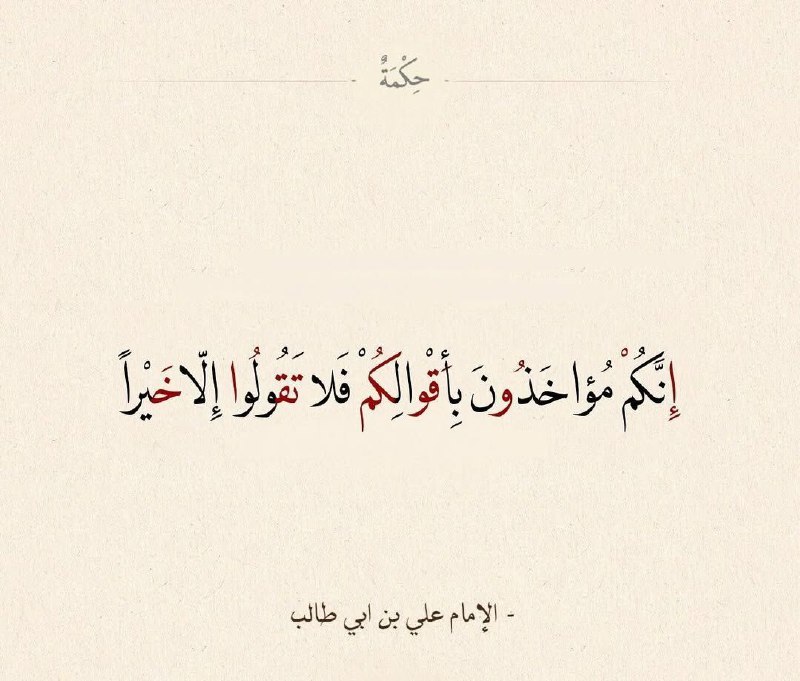 - حِكْمَةٌ -
إِنَّكُمْ مُؤاخَذُونَ بِأَقْوالِكُمْ فَلا تَقُولُوا إِلّا خَيْراً
- الإمام علي بن ابي طالب